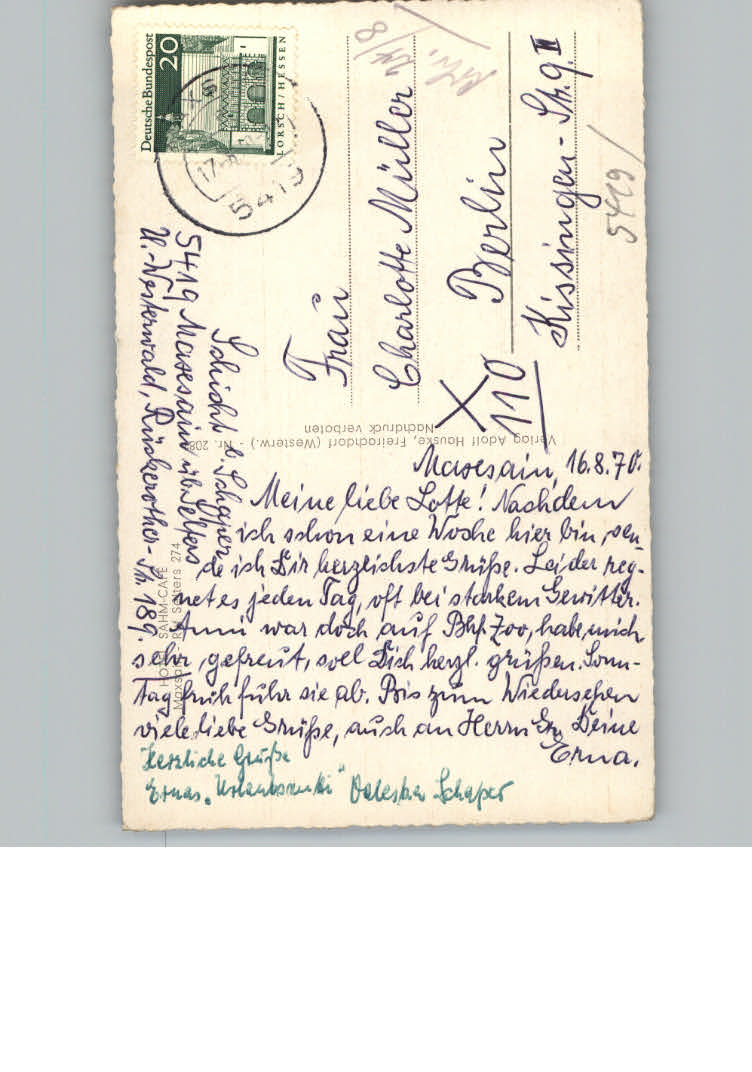 Deutsche Bundespost
20
LORSCH/HESSEN
5419
Schicht b. Schaper
5419 Maxsain üb. Selters
U.-Westerwald, Rückerother-Str. 189.
Frau
Charlotte Müller
X 110 Berlin
Kissingen-Str. 9 II
5419/
HOTEL SAHM-CAFE
Selters 274
Verlag Adolf Hauske, Freirachdorf (Westerw.) - Nr. 208
Nachdruck verboten
Maxsain, 16.8.70.
Meine liebe Lotte! Nachdem
ich schon eine Woche hier bin, sen-
de ich Dir herzlichste Grüße. Leider reg-
net es jeden Tag, oft bei starkem Gewitter.
Anni war doch auf Bhf. Zoo, habe mich
sehr gefreut, soll Dich herzl. grüßen. Sonn-
tag früh fuhr sie ab. Bis zum Wiedersehen
viele liebe Grüße, auch an Herrn Deine
Erna.
Herzliche Grüße
Ernas Schaper